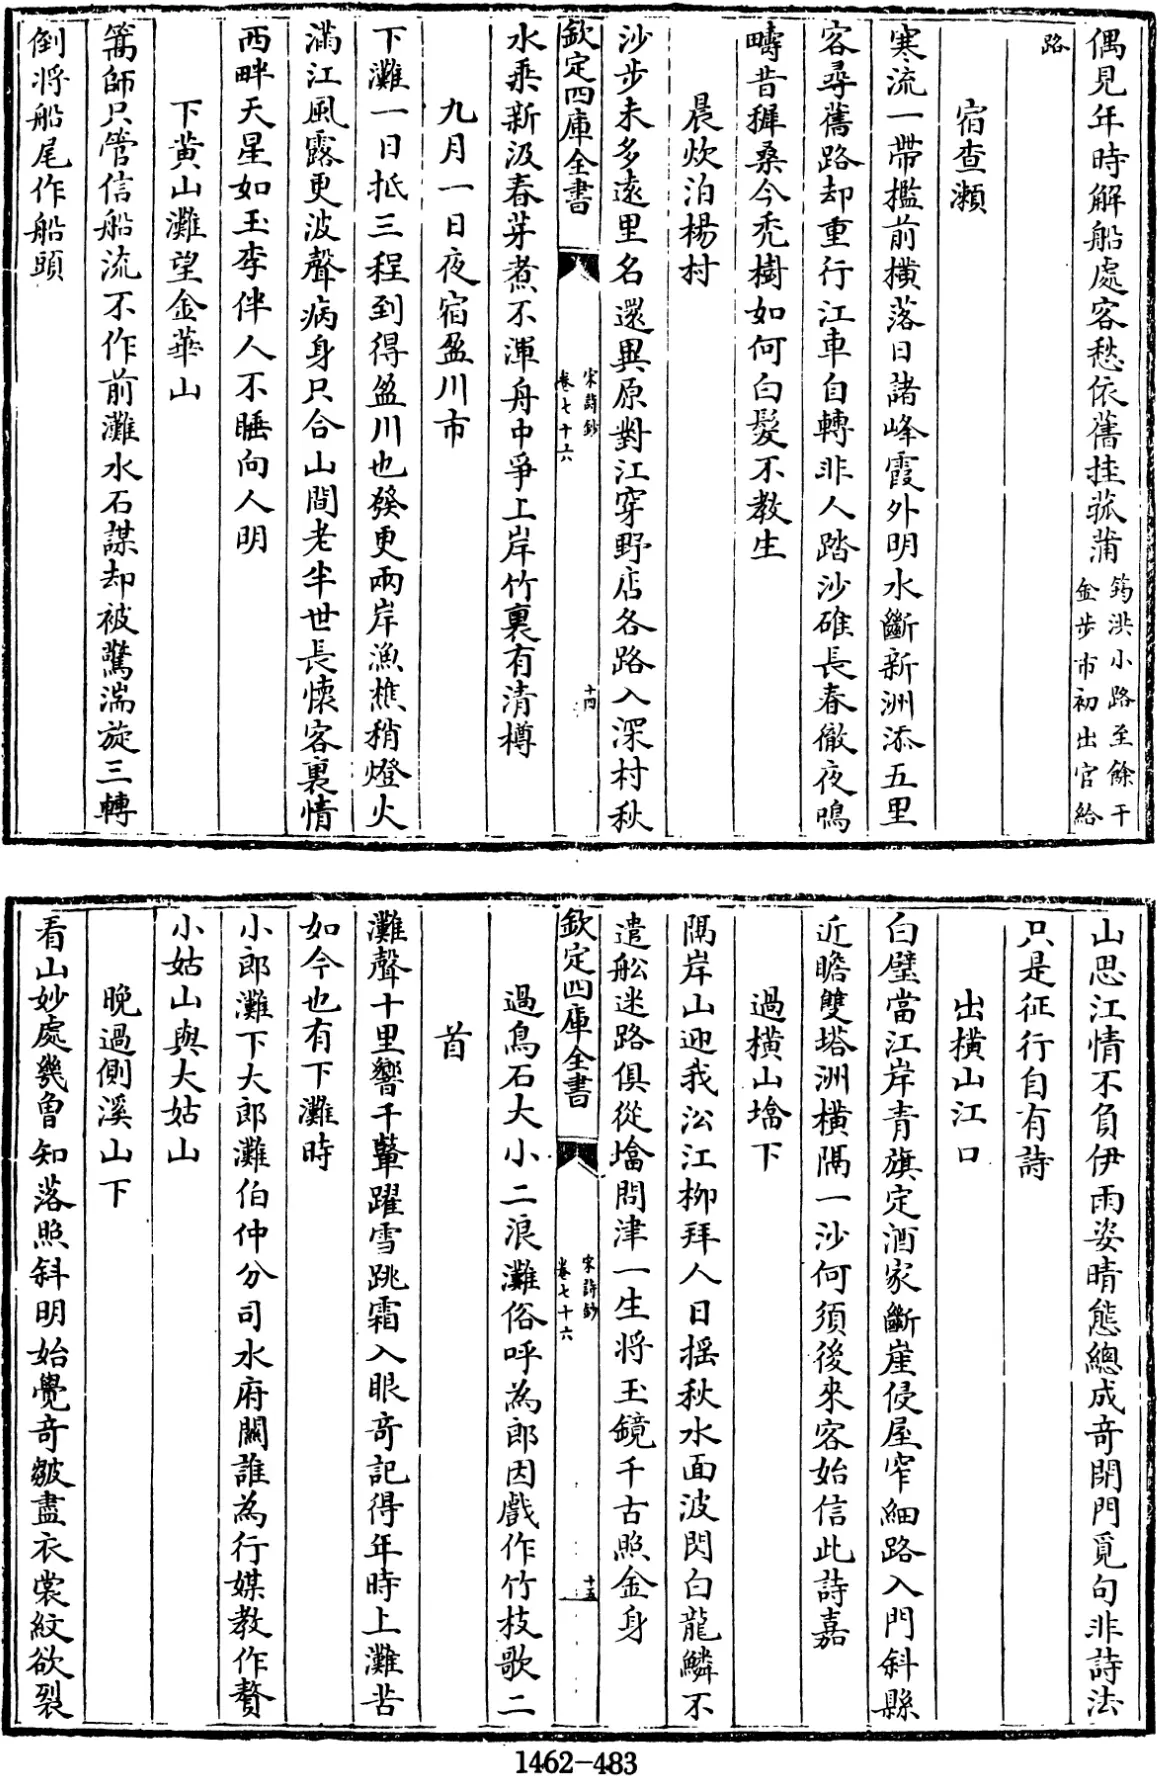 偶見年時解船處客愁依舊挂菰蒲筠洪小路至餘干
金步市初出官給
路
宿查瀬
寒流一帶檻前橫落日諸峰霞外明水斷新洲添五里
客尋舊路却重行江車自轉非人踏沙碓長春徹夜鳴
疇昔穉桑今禿樹如何白髮不教生
晨炊泊楊村
沙步未多遠里名還異原對江穿野店各路入深村秋
欽定四庫全書
宋詩鈔
卷七十六
十四
水乘新汲春芽煮不渾舟中爭上岸竹裏有清樽
九月一日夜宿盈川市
下灘一日抵三程到得盈川也發更兩岸漁樵稍燈火
滿江風露更波聲病身只合山間老半世長懷客裏情
西畔天星如玉李伴人不睡向人明
下黄山灘望金華山
篙師只管信船流不作前灘水石謀却被驚湍旋三轉
倒將船尾作船頭
山思江情不負伊雨姿晴態總成奇閉門覓句非詩法
只是征行自有詩
出橫山江口
白璧當江岸青旗定酒家斷崖侵屋窄細路入門斜縣
近瞻雙塔洲橫隔一沙何須後來客始信此詩嘉
過橫山墖下
隔岸山迎我沿江柳拜人日揺秋水面波閃白龍鱗不
遣舩迷路俱從墖問津一生将玉鏡千古照金身
欽定四庫全書
宋詩鈔
卷七十六
十五
過鳥石大小二浪灘俗呼為郎因戲作竹枝歌二
首
灘聲十里響千鼙躍雪跳霜入眼奇記得年時上灘苦
如今也有下灘時
小郎灘下大郎灘伯仲分司水府關誰為行媒教作贅
小姑山與大姑山
晚過側溪山下
看山妙處幾曾知落照斜明始覺奇皴盡衣裳紋欲裂
1462-483